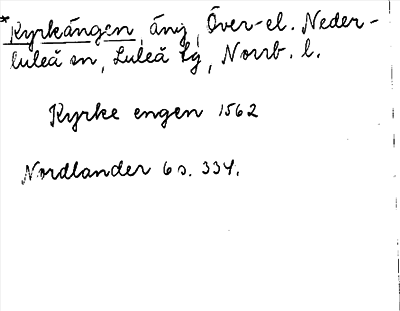 *Kyrkängen, äng, Över-el. Neder-
luleå sn, Luleå tg, Norrb. l.
Kyrke engen 1562
Nordlander 6 s. 334.